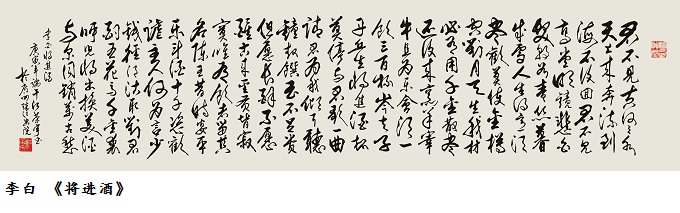 君不见黄河之水
天上来奔流到
海不复回君不见
高堂明镜悲白
发朝如青丝暮
成雪人生得意须
尽欢莫使金樽
空对月天生我材
必有用千金散尽
还复来烹羊宰
牛且为乐会须一
饮三百杯岑夫子
丹丘生将进酒杯
莫停与君歌一曲
请君为我倾耳听
钟鼓馔玉不足贵
但愿长醉不愿
醒古来圣贤皆寂
寞唯有饮者留其
名陈王昔时宴平
乐斗酒十千恣欢
谑主人何为言少
钱径须沽取对君
酌五花马千金裘
呼儿将出换美酒
与尔同销万古愁
李白将进酒
庚寅年
李白 《将进酒》